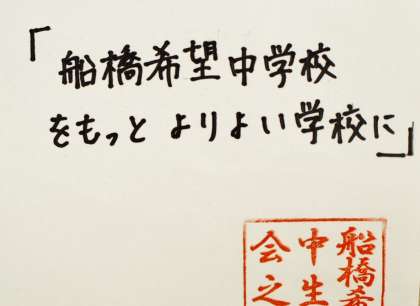 「船橋希望中学校
をもっと よりよい学校に」
船橋希
中生
会之